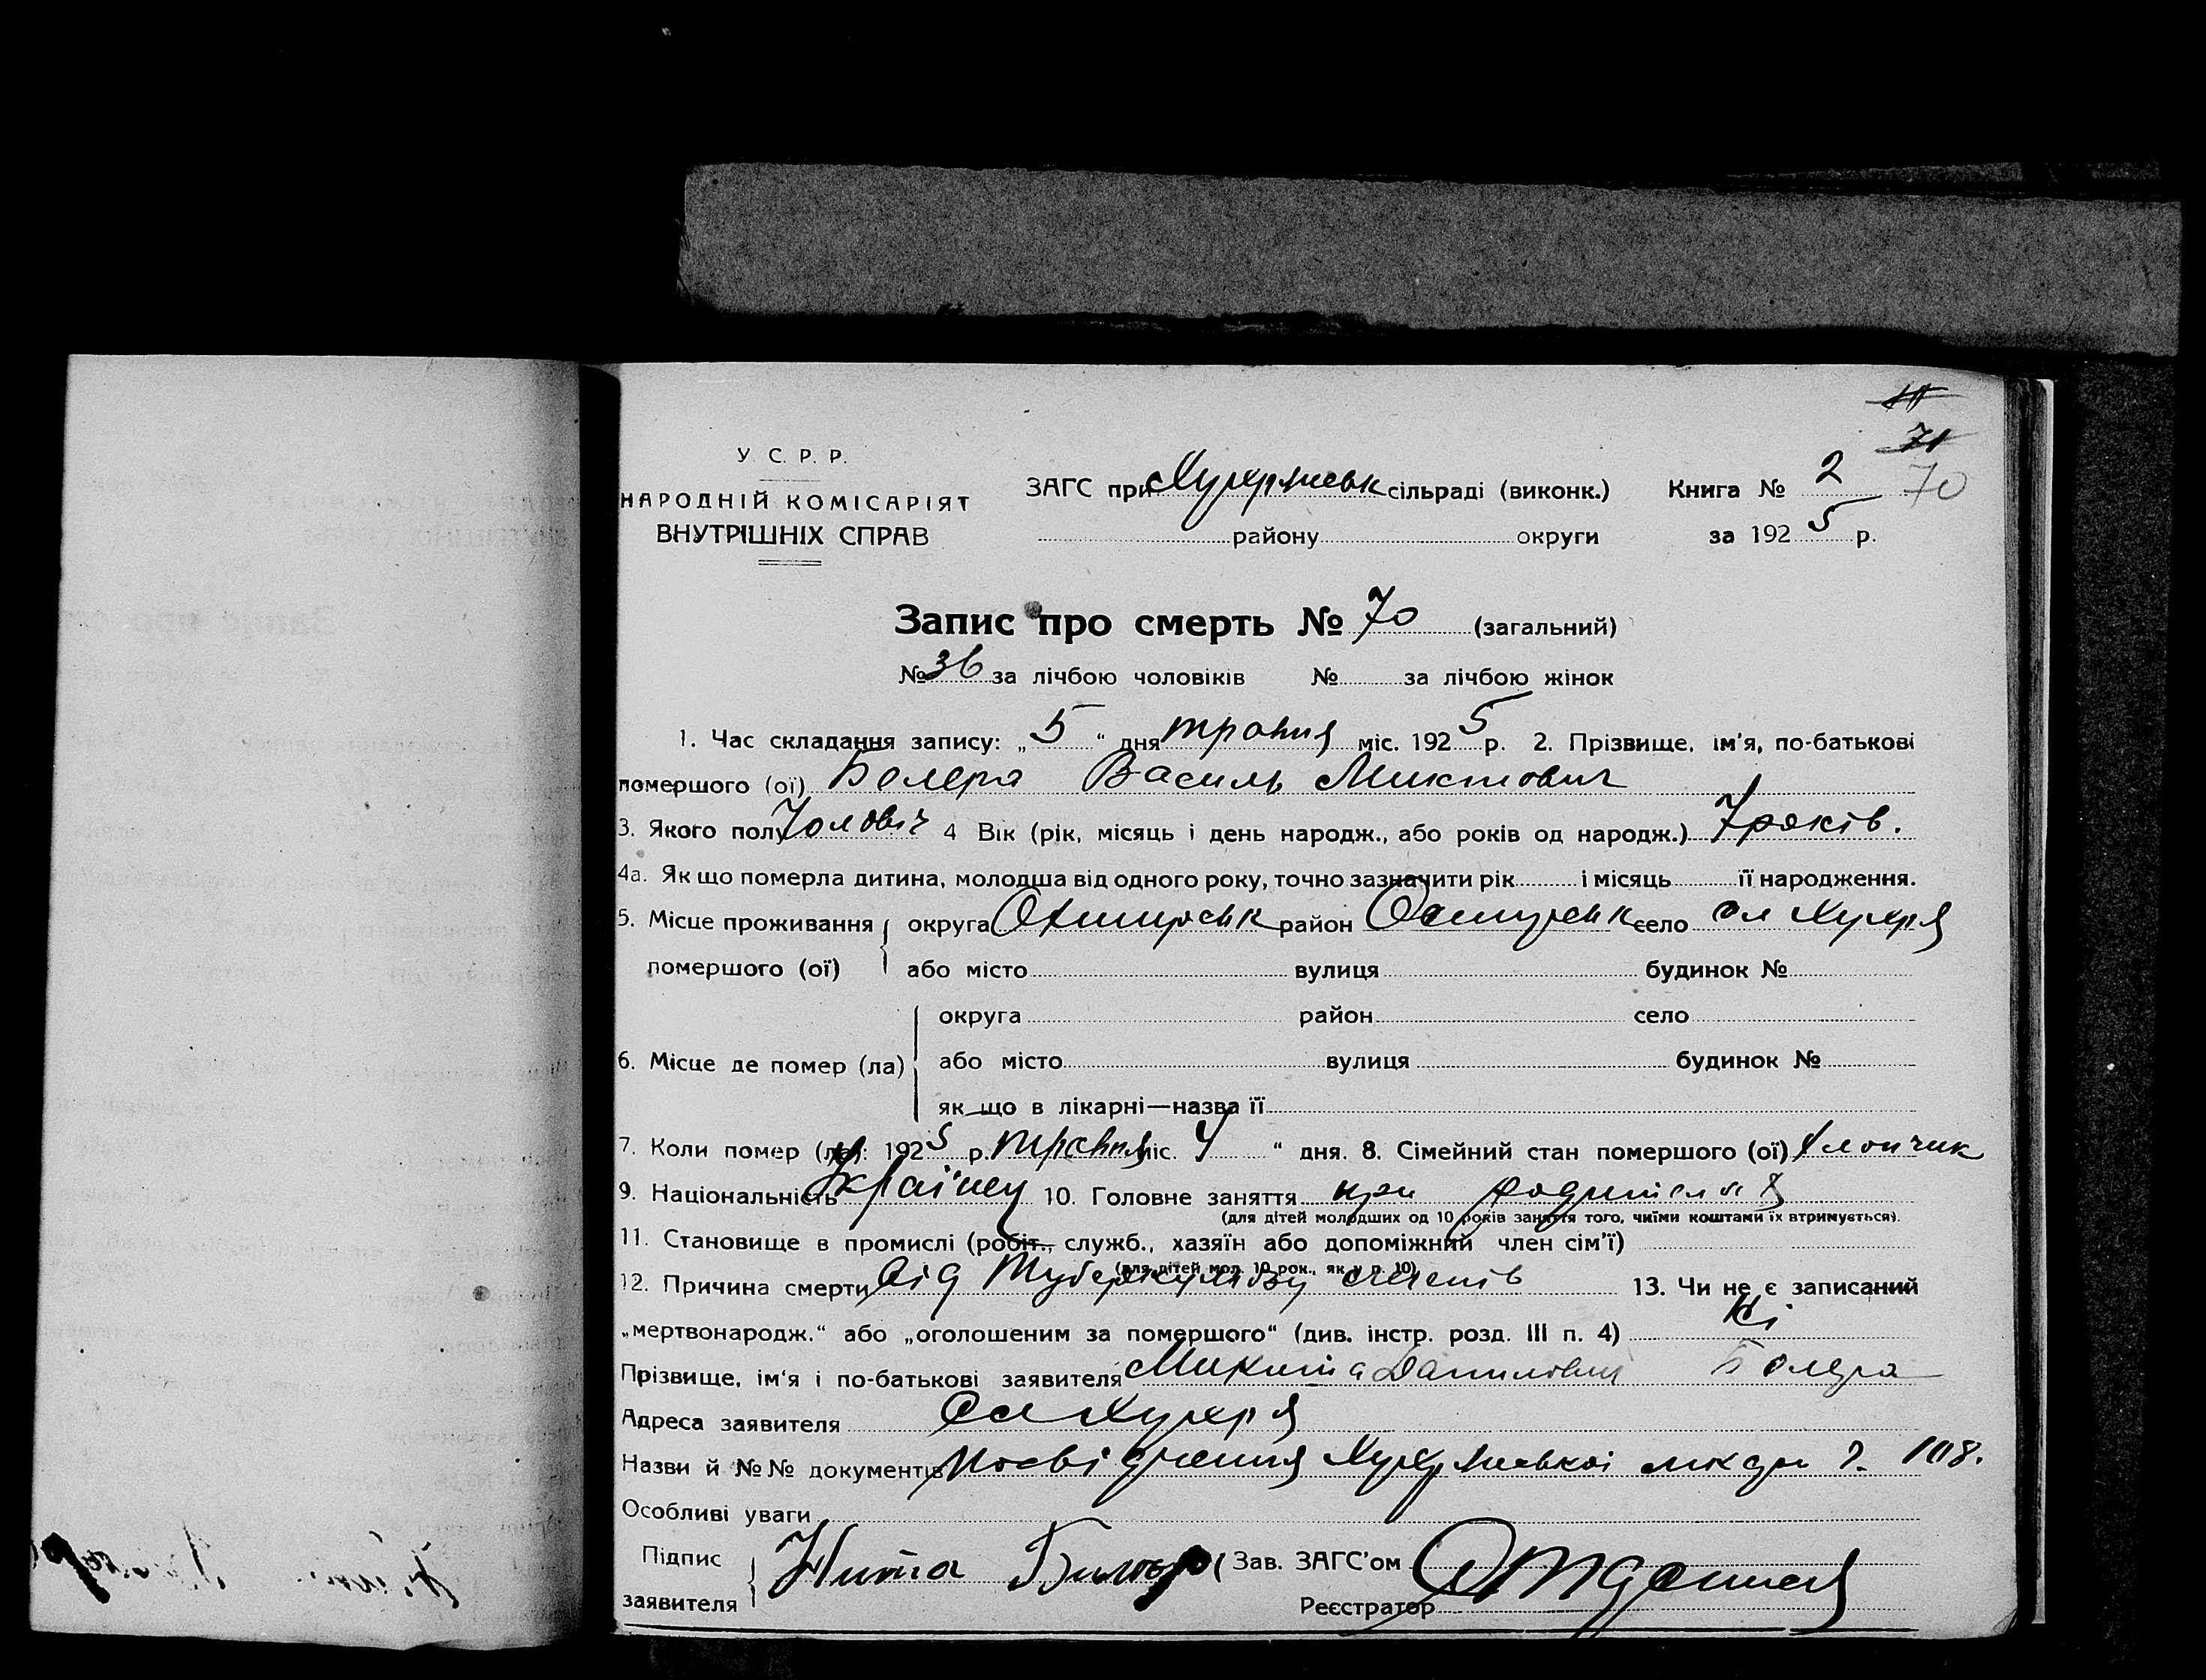 71
У. С. Р. Р.
НАРОДНІЙ КОМІСАРІЯТ
ВНУТРІШНІХ СПРАВ
ЗАГС при Хухрянськ сільраді (виконк.) Книга № 2 70
району округи за 1925 р.
Запис про смерть № 70 (загальний)
№ 36 за лічбою чоловіків № за лічбою жінок
1. Час складання запису: „5“ дня травня міс. 1925 р. 2. Прізвище, ім'я, по-батькові
помершого (ої) Василь Микитович
3. Якого полу Чоловіч 4 Вік (рік, місяць і день народж., або років од народж.) 7 років.
4а. Як що померла дитина, молодша від одного року, точно зазначити рік і місяць її народження.
5. Місце проживання округа Охтирськ район село сл Хухря
помершого (ої) або місто вулиця будинок №
округа район село
6. Місце де помер (ла) або місто вулиця будинок №
як що в лікарні—назва її
7. Коли помер (ла): 1925 р. травня міс. 4 “ дня. 8. Сімейний стан помершого (ої) хлопчик
9. Національність Українец 10. Головне заняття при родителях
(для дітей молодших од 10 років заняття того, чиїми коштами їх втримується).
11. Становище в промислі (робіт., служб., хазяїн або допоміжний член сім'ї)
(для дітей мол. 10 рок., як у п. 10)
12. Причина смерти від Туберкульозу 13. Чи не є записаний
„мертвонародж.“ або „оголошеним за помершого“ (див. інстр. розд. III п. 4) Ні
Прізвище, ім'я і по-батькові заявителя Микита Данилович
Адреса заявителя Сл Хухря
Назви й №№ документів Посвідчення Хухрянської 118.
Особливі уваги
Підпис Зав. ЗАГС'ом
заявителя Реєстратор